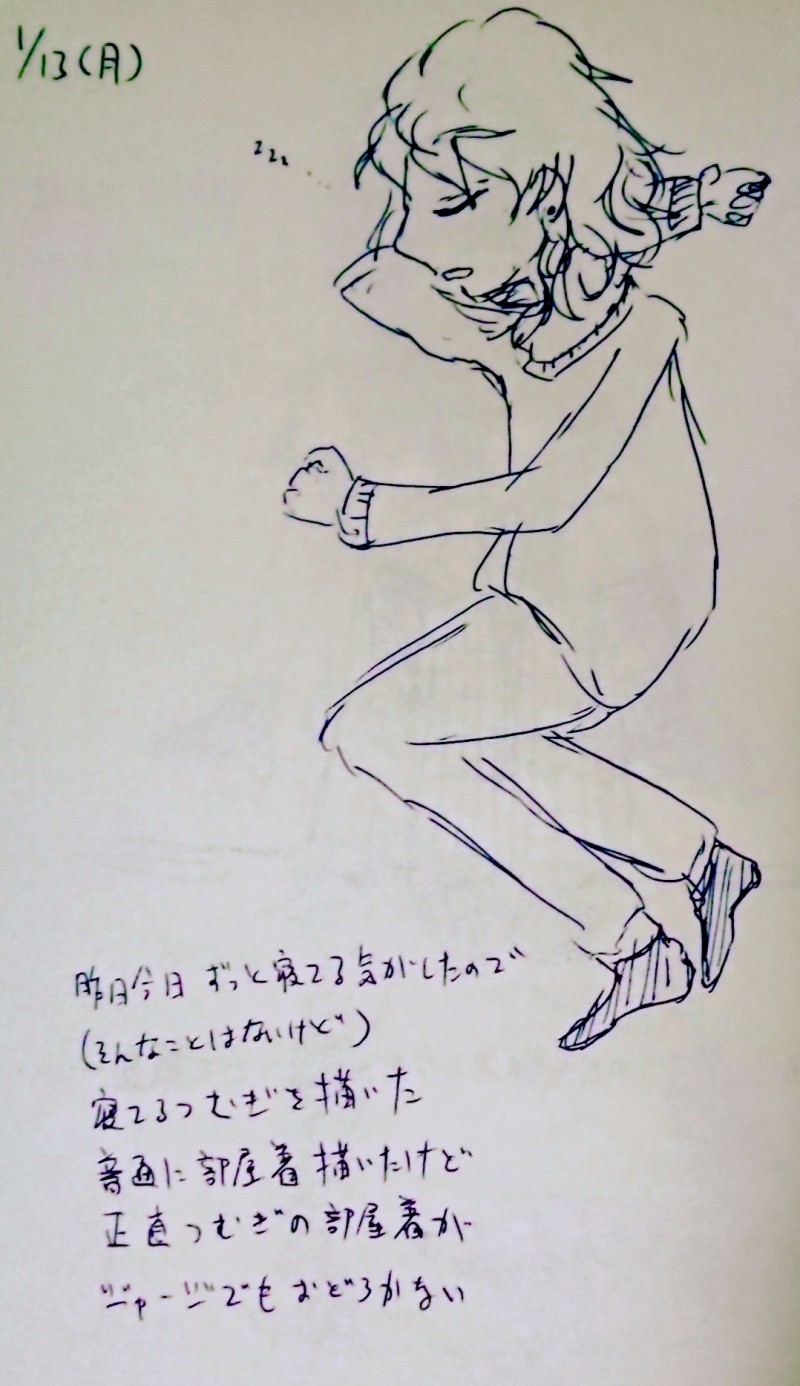 1/13(月)
zzz
昨日今日ずっと寝てる気がしたので
(そんなことはないけど)
寝てるつむぎを描いた
普通に部屋着描いたけど
正直つむぎの部屋着が
ジャージでもおどろかない